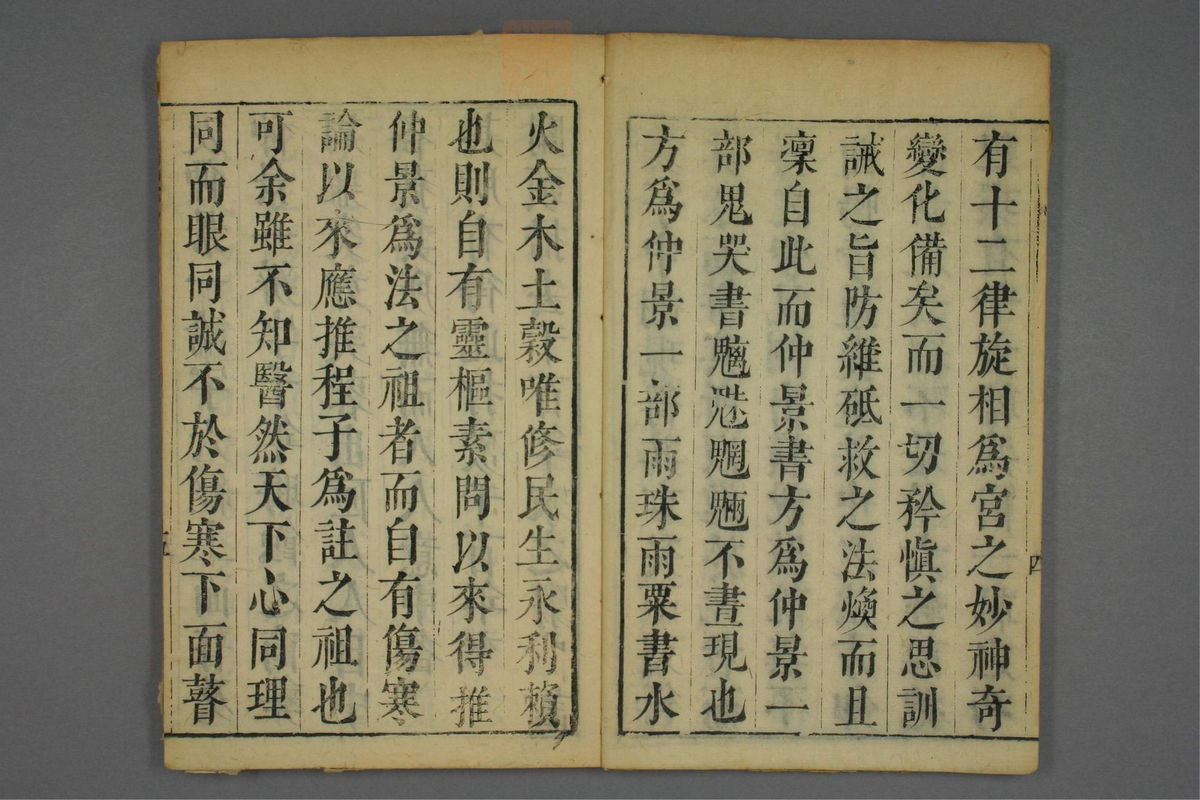 有十二律旋相爲宮之妙神奇
變化備矣而一切矜愼之思訓
誡之旨防維砥救之法煥而且
凜自此而仲景書方爲仲景一
部鬼哭書魑魅魍魎不晝現也
方爲仲景一部雨珠雨粟書水
四
火金木土穀唯修民生永利賴
也則自有靈樞素問以來得推
仲景爲法之祖者而自有傷寒
論以來應推程子爲註之祖也
可余雖不知醫然天下心同理
同而眼同誠不於傷寒下面瞽
五